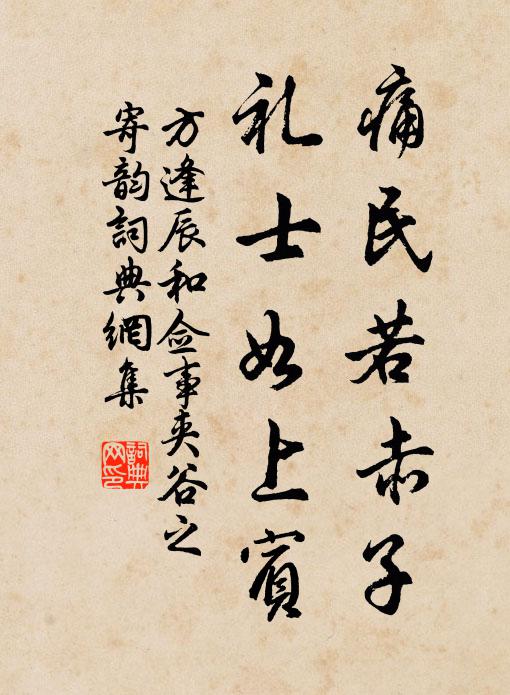 痛民若赤子
礼士如上賓
方逢辰和佥事夹谷之
寄韵詞典網集
詞典
网印